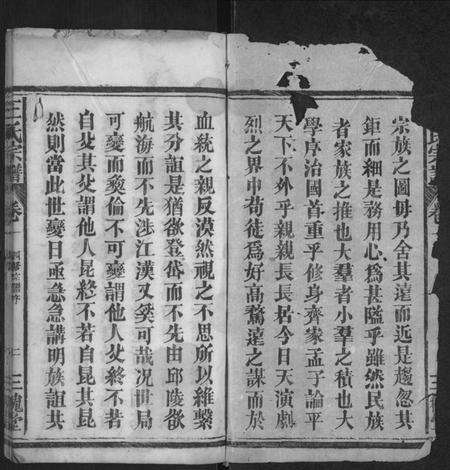 宗族之圖毋乃舍其遠而近是趨忽其
鉅而細是務用心爲甚隘乎雖然民族
者家族之推也大羣者小羣之積也大
學序治國首重乎修身齊家孟子論平
天下不外乎親親長長居今日天演劇
烈之界中苟徒爲好高騖遠之謀而於
血統之親反漠然視之不思所以維繫
其分誼是猶欲登岱而不先由邱陵欲
航海而不先涉江漢又奚可哉况世局
可變而彜倫不可變謂他人父終不若
自父其父謂他人昆終不若自昆其昆
然則當此世變日亟急急講明族誼其
王氏宗譜
卷
三槐堂